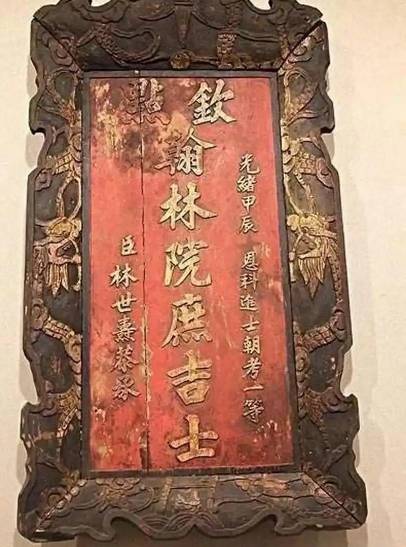 欽點
光緒甲辰 恩科進士朝考一等
翰林院庶吉士
臣林世燾恭承